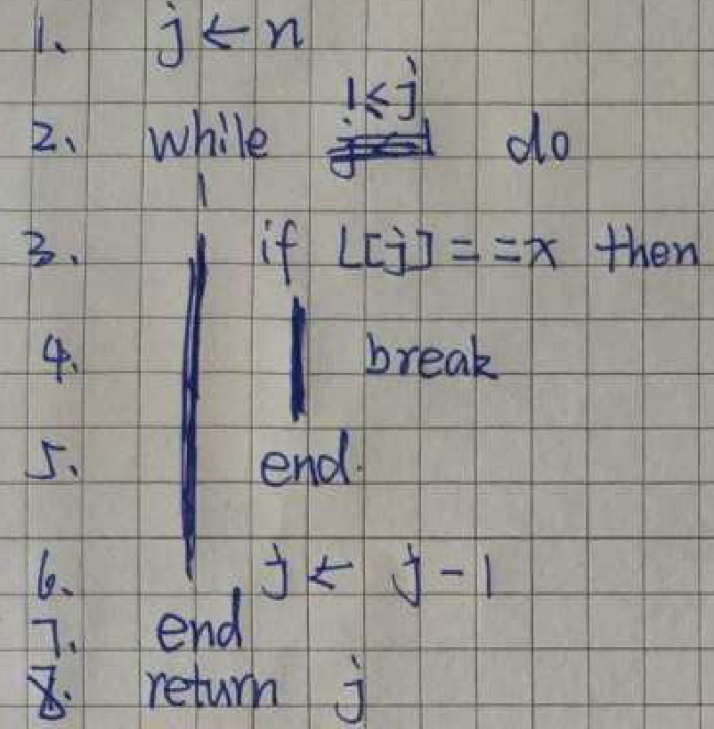 1、 j ← n
2、 while 1≤j do
3. if L[j] = = x then
4. break
5、 end.
6、 j ← j - 1
7. end
8. return j